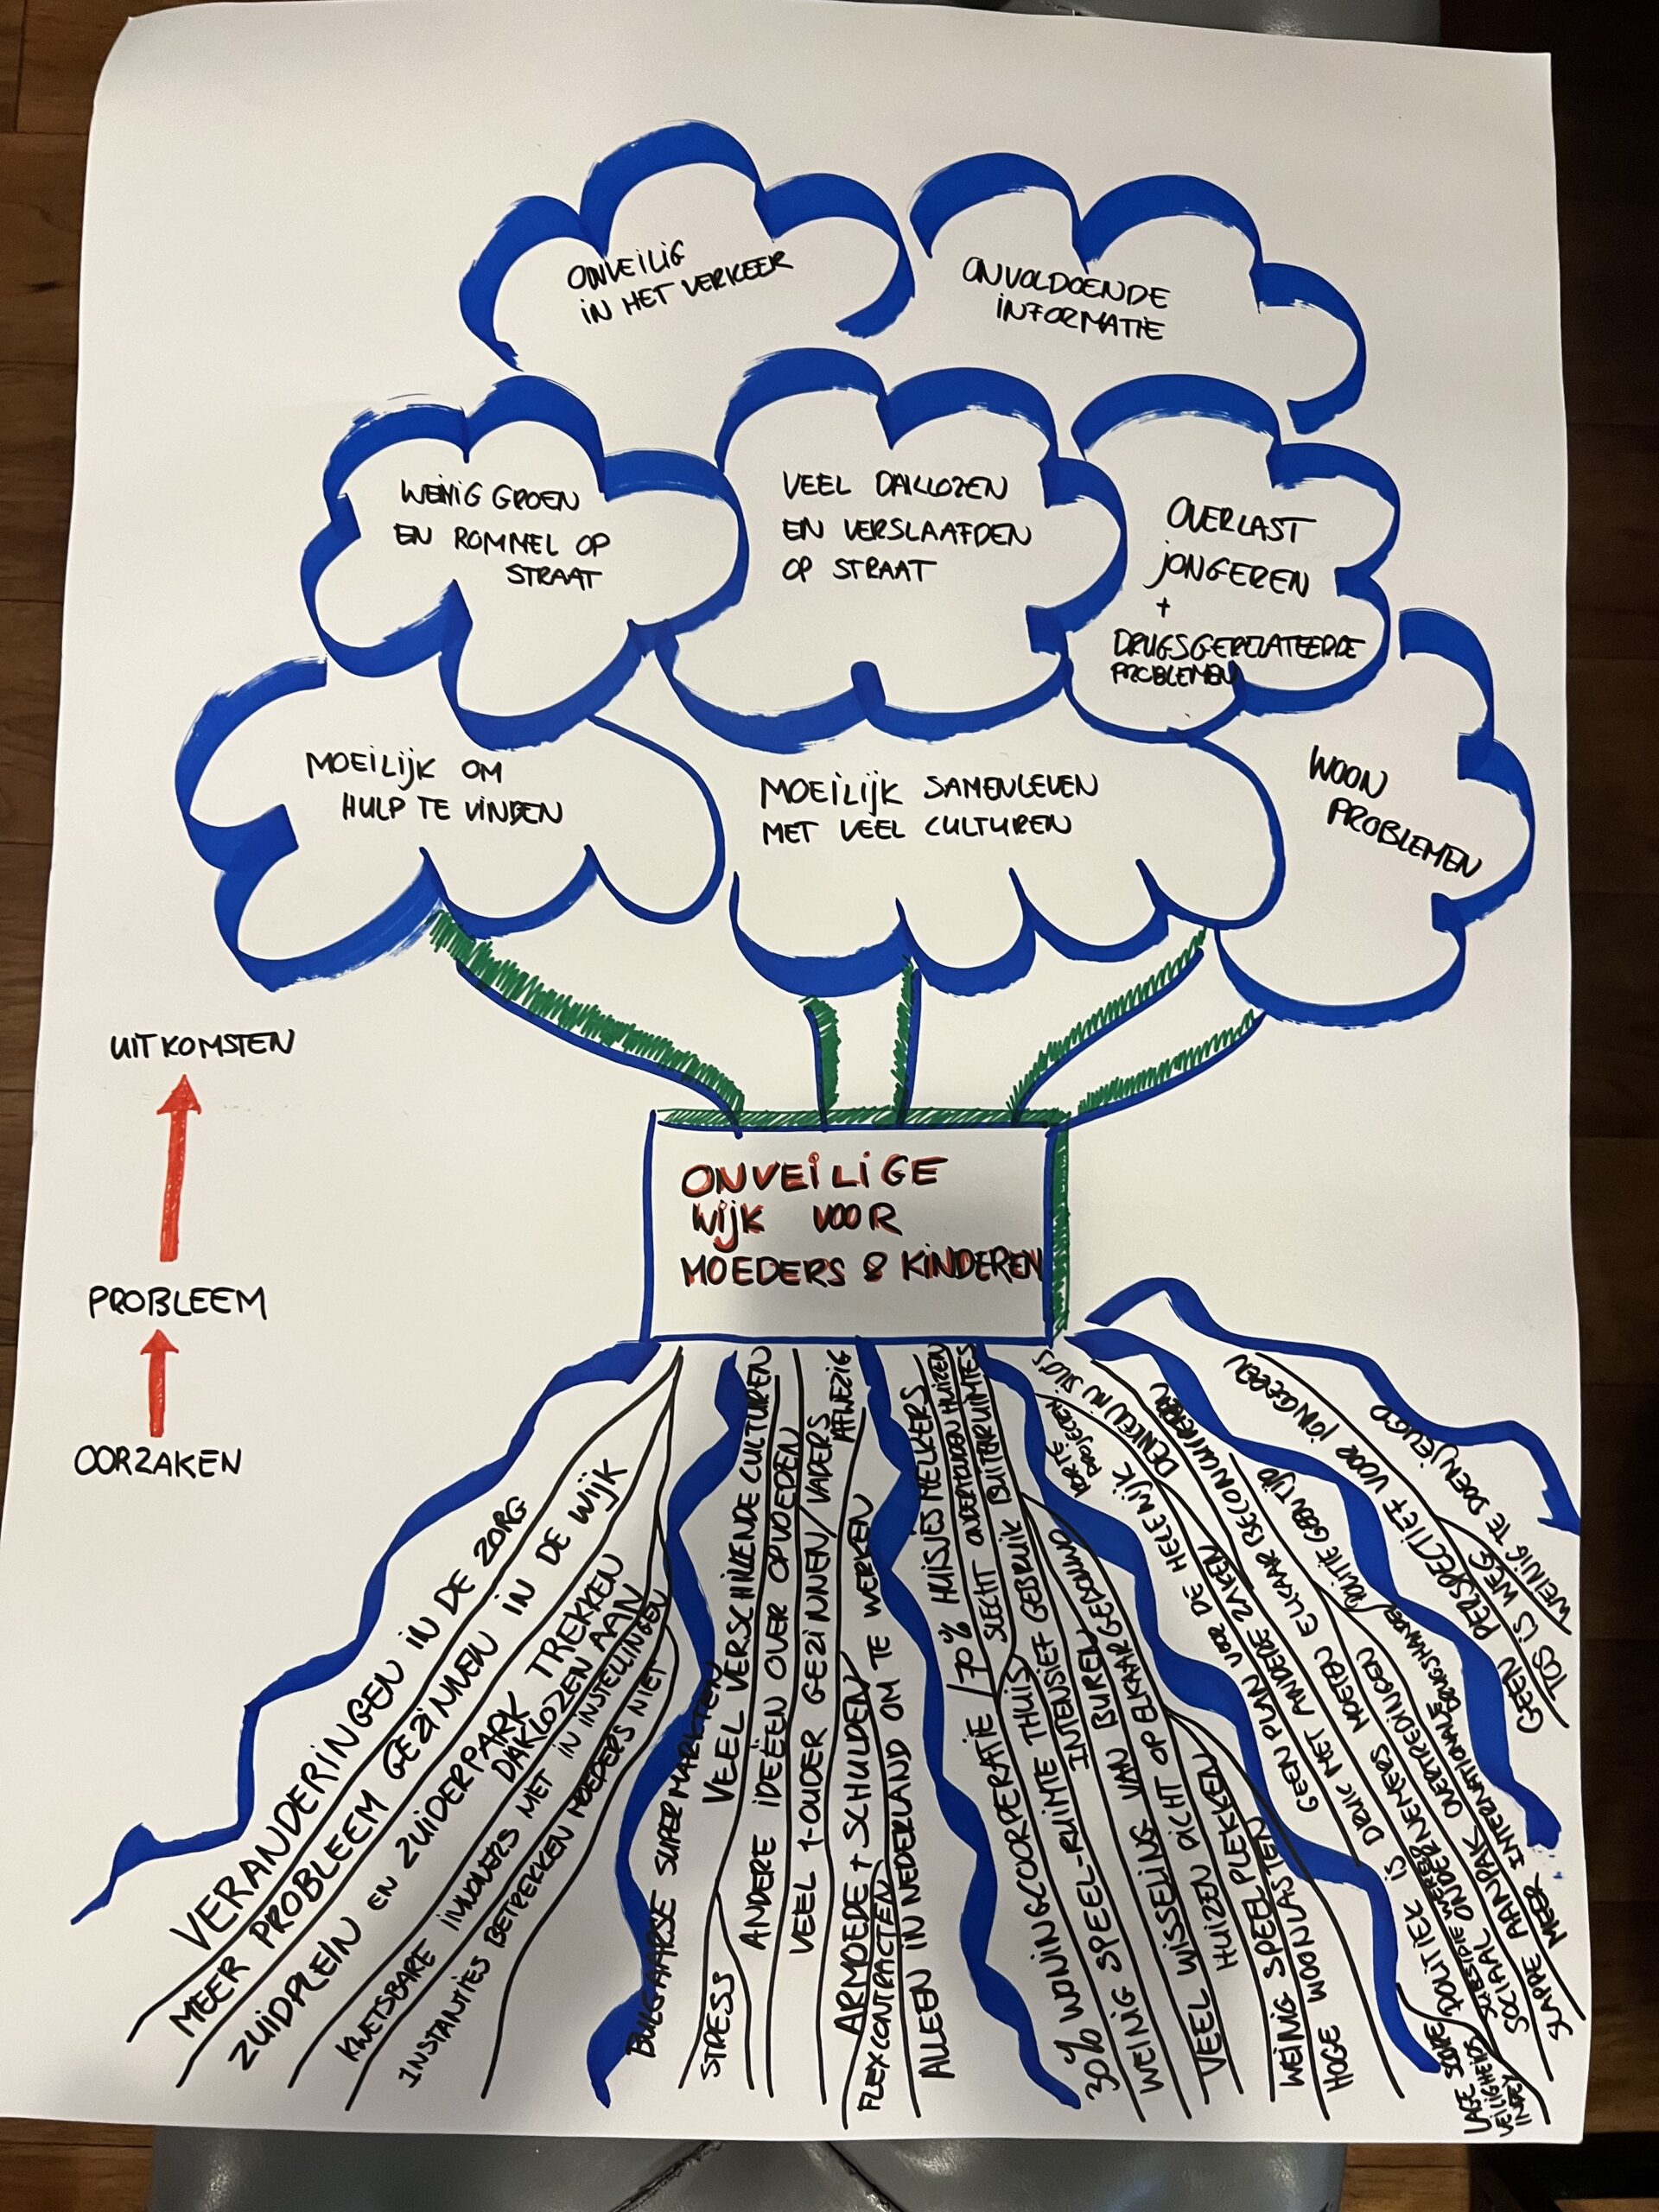 ONVEILIG
IN HET VERKEER
ONVOLDOENDE
INFORMATIE
WEINIG GROEN
EN ROMMEL OP
STRAAT
VEEL DAKLOZEN
EN VERSLAAFDEN
OP STRAAT
OVERLAST
JONGEREN
+
DRUGSGERELATEERDE
PROBLEMEN
MOEILIJK OM
HULP TE VINDEN
MOEILIJK SAMENLEVEN
MET VEEL CULTUREN
WOON
PROBLEMEN
UITKOMSTEN
PROBLEEM
OORZAKEN
ONVEILIGE
WIJK VOOR
MOEDERS & KINDEREN
VERANDERINGEN IN DE ZORG
MEER PROBLEEM GEZINNEN IN DE WIJK
ZUIDPLEIN EN ZUIDERPARK TREKKEN
DAKLOZEN AAN
KWETSBARE INWONERS MET IN INSTELLINGEN
INSTANTIES BETREKKEN MOEDERS NIET
BULGAARSE SUPERMARKTEN
STRESS
VEEL VERSCHILLENDE CULTUREN
ANDERE IDEËEN OVER OPVOEDEN
VEEL 1-OUDER GEZINNEN / VADERS
AFWEZIG
ARMOEDE + SCHULDEN
FLEXCONTRACTEN
ALLEEN IN NEDERLAND OM TE WERKEN
30% WONINGCOORPERATIE / 70% HUISJESMELKERS
SLECHT ONDERHOUDEN HUIZEN
WEINIG SPEEL-RUIMTE THUIS
INTENSIEF GEBRUIK BUITENRUIMTES
VEEL WISSELING VAN BUREN
HUIZEN DICHT OP ELKAAR GEBOUWD
WEINIG SPEELPLEKKEN
HOGE WOONLASTEN
KORTE
PROJECTEN
DENKEN IN SILO'S
GEEN PLAN VOOR DE HELE WIJK
POLITIEK IS DRUK MET ANDERE ZAKEN
SOCIAAL ONDERNEMERS MOETEN ELKAAR BECONCURREREN
LAGE SCORE
VEILIGHEIDS
INDEX
SLAPPE AANPAK OVERTREDINGEN / POLITIE GEEN TIJD
MEER INTERNATIONALE DRUGSHANDEL
GEEN PERSPECTIEF VOOR JONGEREN
TOS IS WEG
WEINIG TE DOEN JEUGD